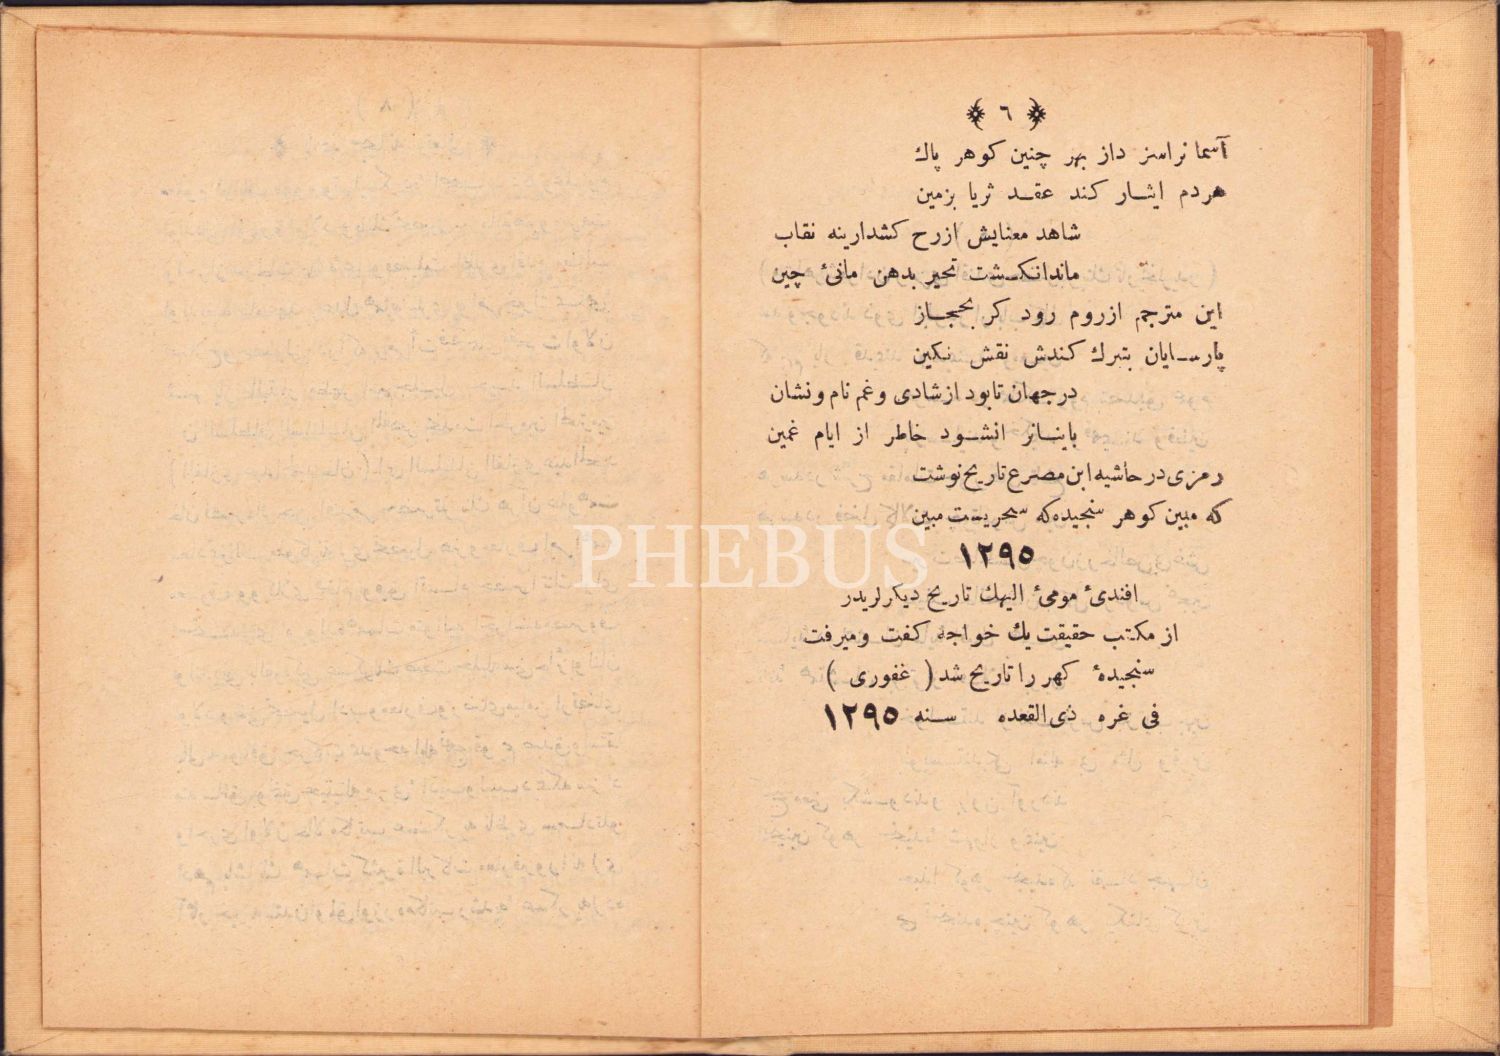 ٦
آسما نراسز داز بهر چنین کوهر پاك
هردم ایثـار کند عقـد ثریا بزمین
شاهد معنایش ازرح کشدارینه نقاب
ماندانکـشت تحیر بدهن مانیٔ چین
این مترجم ازروم رود کر بحجـاز
پارسـایان بتبرك کندش نقش نکین
درجهان تابود ازشادی وغم نام ونشان
باینـانز انشـود خاطر از ایام غمین
رمزی درحاشیه ابن مصرع تاریخ نوشت
که مبین کوهر سنجیده که سحریست مبین
١٢٩٥
افندیٔ مومیٔ الیهك تاریخ دیکرلریدر
از مکتب حقیقت یك خواجه کفت ومیرفت
سنجیدهٔ کهر را تاریخ شد ( غفوری )
فی غره ذی القعده سـنه ١٢٩٥
PHEBUS